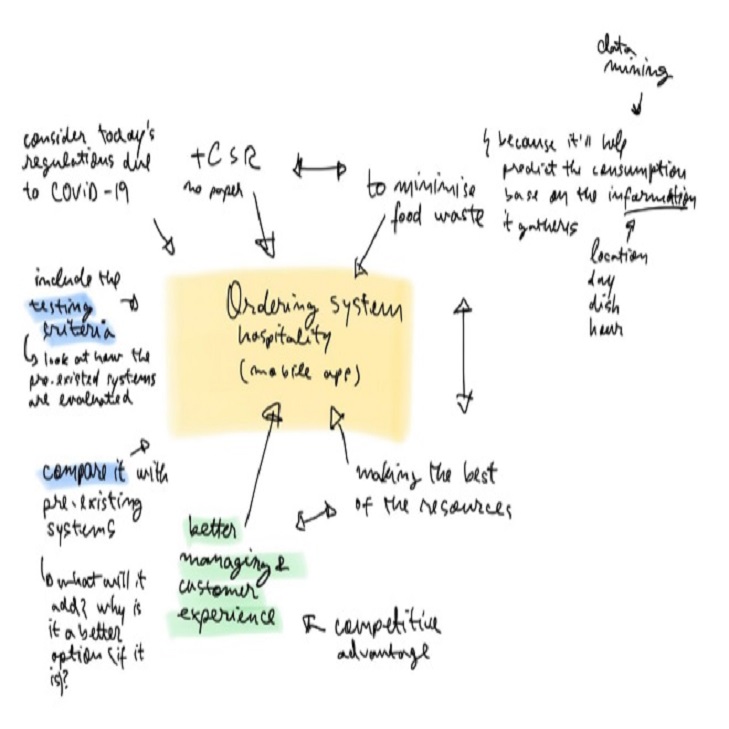 data
mining
consider today's
regulations due
to COViD-19
+CSR
no paper
to minimise
food waste
because it'll help
predict the consumption
base on the information
it gathers
location
day
dish
hour
include the
testing
criteria
look at how the
pre-existed systems
are evaluated
Ordering system
hospitality
(mobile app)
compare it with
pre-existing
systems
what will it
add? why is
it a better
option (if it
is)?
making the best
of the resources
better
managing &
customer
experience
competitive
advantage